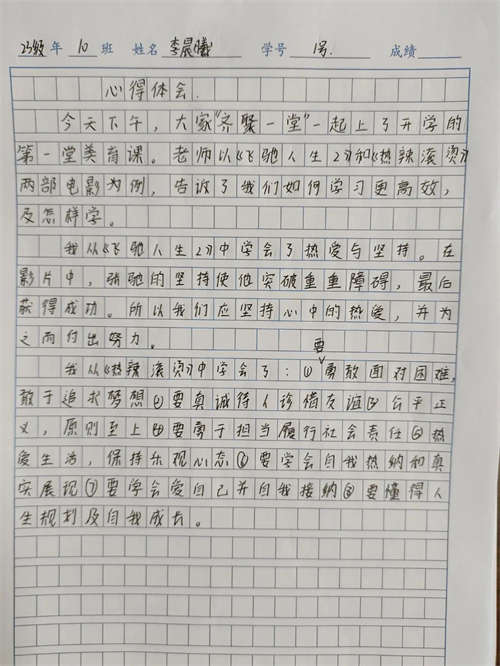 23级 年 10 班 姓名 李晨曦 学号 1号. 成绩
心得体会.
今天下午，大家“齐聚一堂”一起上了开学的
第一堂美育课。老师以《飞驰人生2》和《热辣滚烫》
两部电影为例，告诉了我们如何学习更高效，
及怎样学。
我从《飞驰人生2》中学会了热爱与坚持。在
影片中，张驰的坚持使他突破重重障碍，最后
获得成功。所以我们应坚持心中的热爱，并为
之而付出努力。
要
我从《热辣滚烫》中学会了：①勇敢面对困难，
敢于追求梦想②要真诚待人珍惜友谊③公平正
义，原则至上④要勇于担当履行社会责任⑤热
爱生活，保持乐观心态⑥要学会自我热纳和真
实展现⑦要学会爱自己并自我接纳⑧要懂得人
生规划及自我成长。